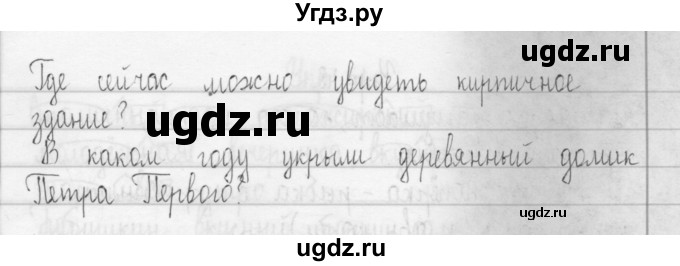 Угдз.ру
ugdz.ru
Где сейчас можно увидеть кирпичное
здание?
ugdz.ru
В каком году укрыли деревянный домик
Петра Первого?
ugdz.ru
ugdz.ru